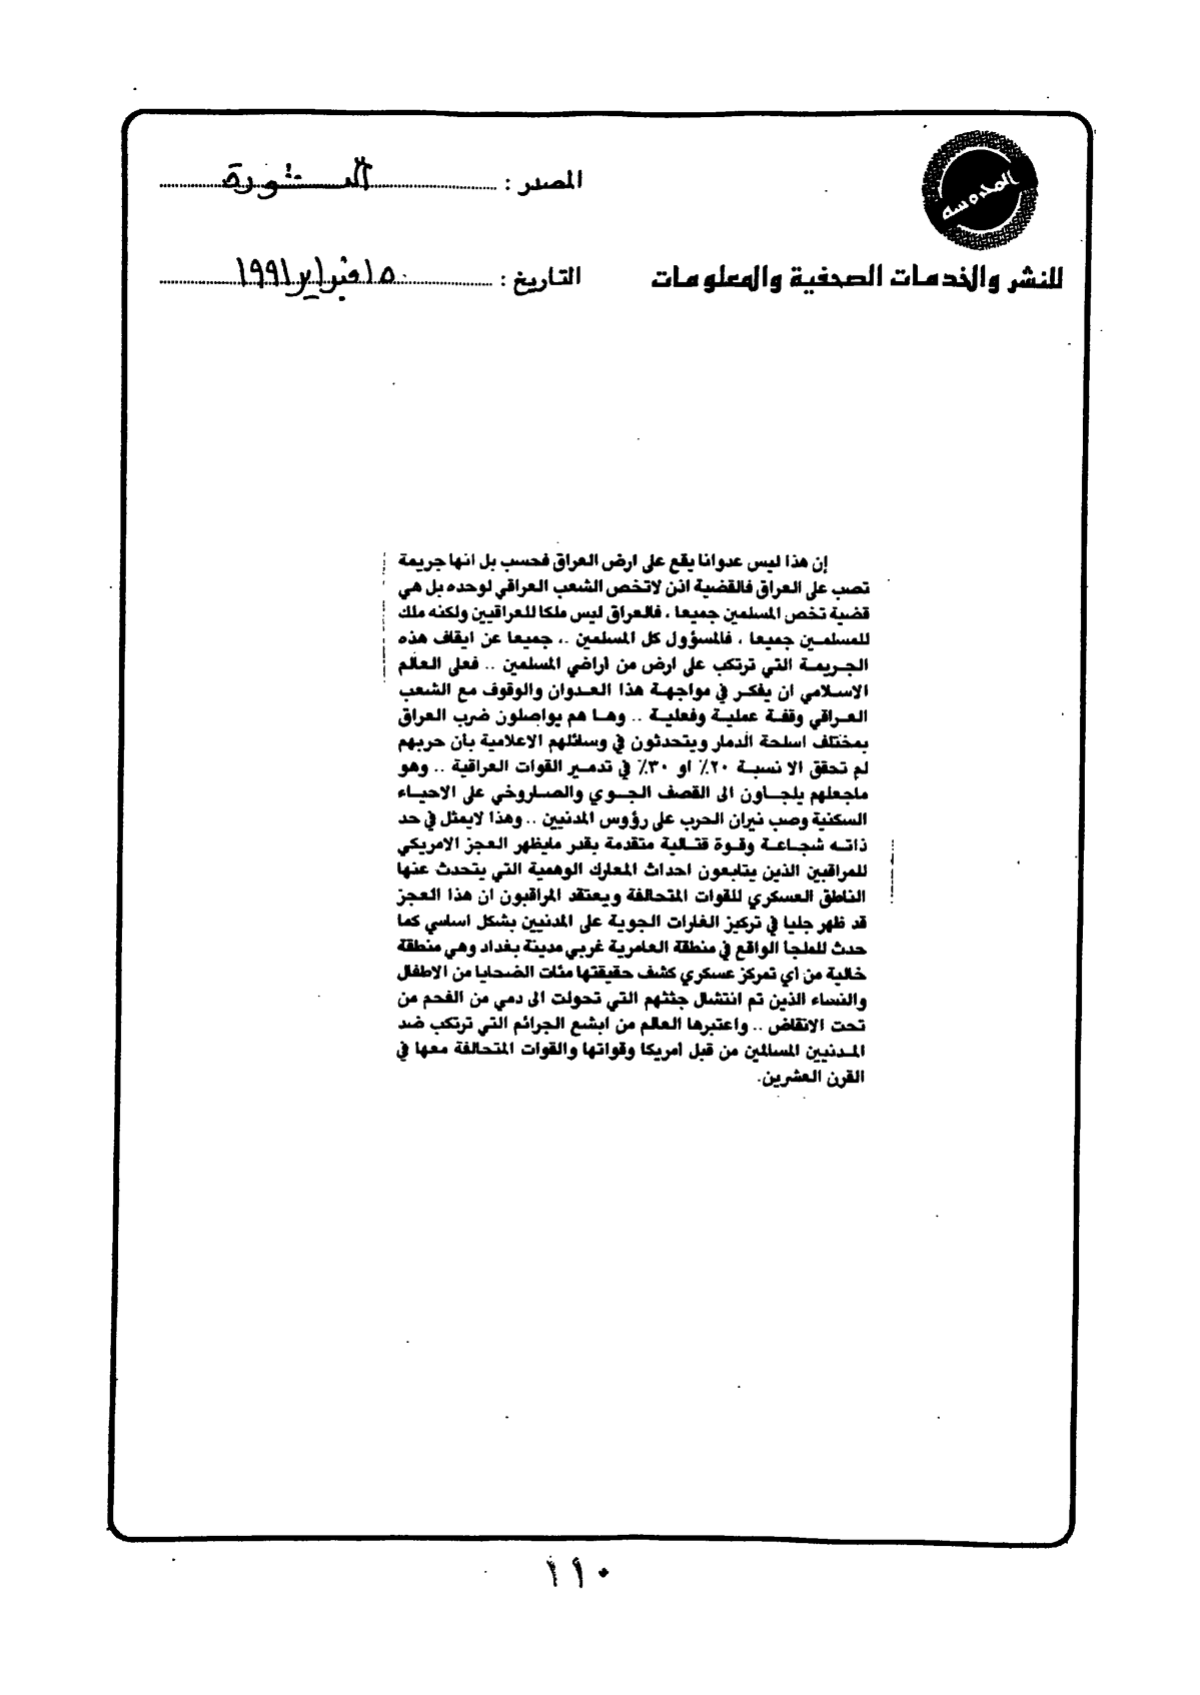 المحروسة
للنشر والخدمات الصحفية والمعلومات
المصدر : الثورة
التاريخ : ١٥ فبراير ١٩٩١
إن هذا ليس عدوانا يقع على ارض العراق فحسب بل انها جريمة
تصب على العراق فالقضية اذن لاتخص الشعب العراقي لوحده بل هي
قضية تخص المسلمين جميعا ، فالعراق ليس ملكا للعراقيين ولكنه ملك
للمسلمين جميعا ، فالمسؤول كل المسلمين .. جميعا عن ايقاف هذه
الجريمة التي ترتكب على ارض من أراضي المسلمين .. فعلى العالم
الاسلامي ان يفكر في مواجهة هذا العدوان والوقوف مع الشعب
العراقي وقفة عملية وفعلية .. وها هم يواصلون ضرب العراق
بمختلف اسلحة الدمار ويتحدثون في وسائلهم الاعلامية بأن حربهم
لم تحقق الا نسبة ٢٠٪ او ٣٠٪ في تدمير القوات العراقية .. وهو
ماجعلهم يلجاون الى القصف الجوي والصاروخي على الاحياء
السكنية وصب نيران الحرب على رؤوس المدنيين .. وهذا لايمثل في حد
ذاته شجاعة وقوة قتالية متقدمة بقدر مايظهر العجز الامريكي
للمراقبين الذين يتابعون احداث المعارك الوهمية التي يتحدث عنها
الناطق العسكري للقوات المتحالفة ويعتقد المراقبون ان هذا العجز
قد ظهر جليا في تركيز الغارات الجوية على المدنيين بشكل اساسي كما
حدث للملجا الواقع في منطقة العامرية غربي مدينة بغداد وهي منطقة
خالية من أي تمركز عسكري كشف حقيقتها مئات الضحايا من الاطفال
والنساء الذين تم انتشال جثثهم التي تحولت الى دمي من الفحم من
تحت الانقاض .. واعتبرها العالم من ابشع الجرائم التي ترتكب ضد
المدنيين المسالمين من قبل أمريكا وقواتها والقوات المتحالفة معها في
القرن العشرين.
١١٠